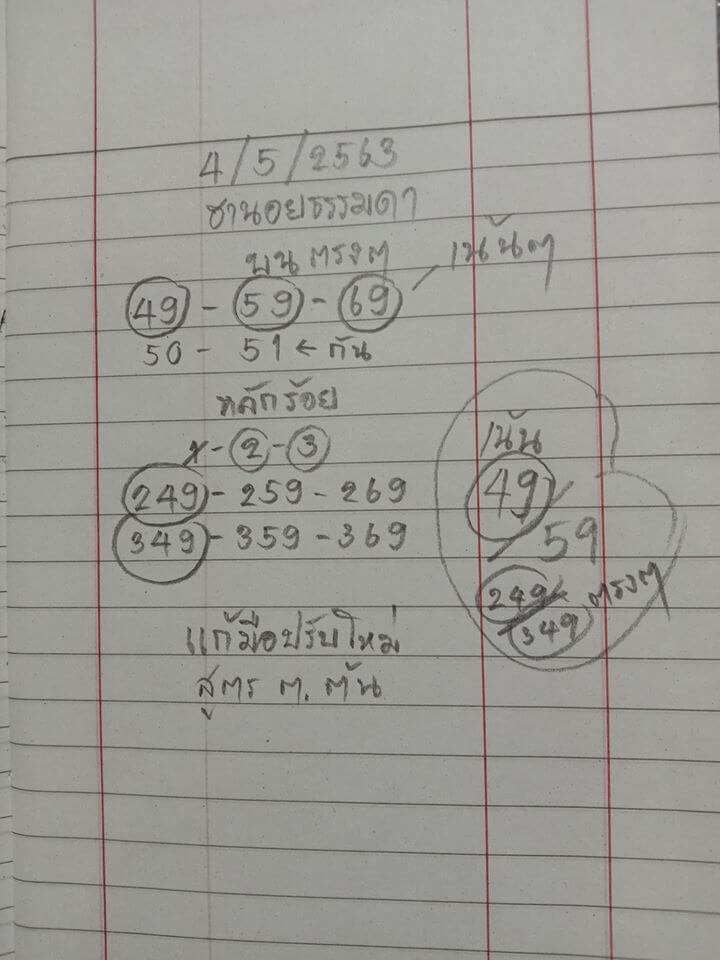 4/5/2563
ฮานอยธรรมดา
บนตรงๆ
49 - 59 - 69 / เน้นๆ
50 - 51 ← กัน
หลักร้อย
x - 2 - 3
249 - 259 - 269
349 - 359 - 369
เน้น
49/
/59
249/
/349 ตรงๆ
แก้มือปรับใหม่
สูตร ต. ต้น